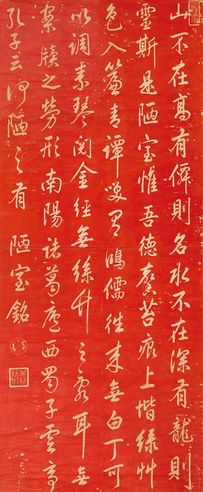 山不在高有僊則名水不在深有龍則
靈斯是陋室惟吾德馨苔痕上堦綠艸
色入簾青譚笑有鴻儒往來無白丁可
以調素琴閱金經無絲竹之亂耳無
案牘之勞形南陽諸葛廬西蜀子雲亭
孔子云何陋之有 陋室銘